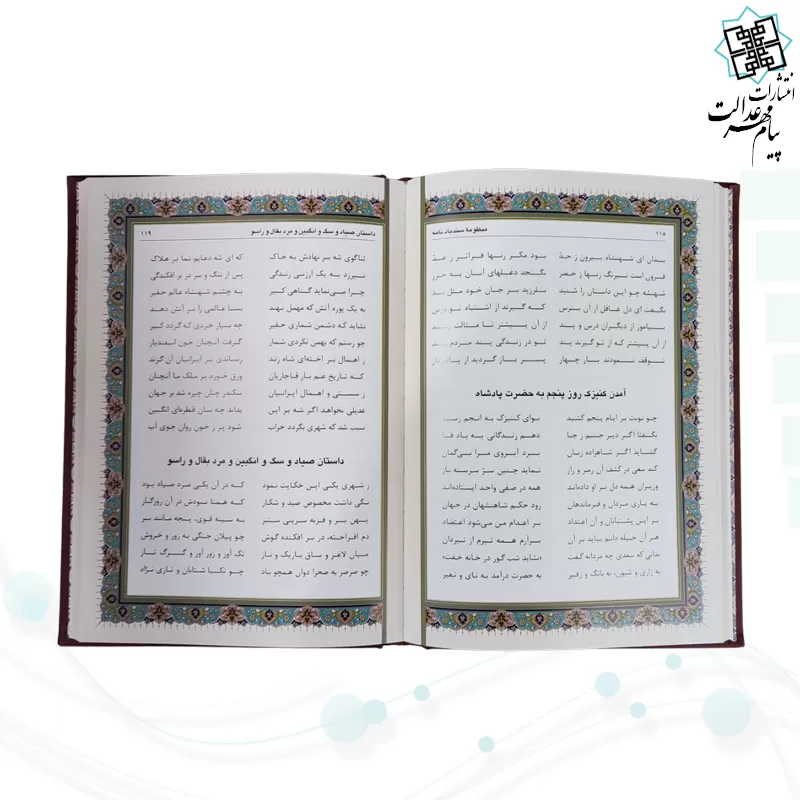 انتشارات
پیام مهر عدالت
۱۱۸ منظومهٔ سندباد نامه
بدان ای شهنشاه بیرون ز حد بود مکر زنها فراتر ز عد
فزون است نیرنگ زنها ز حصر نگنجد دغلهای آنان به
شهنشه چو این داستان را شنید بلرزید بر جان خود مثل بید
بگفت ای دل غافل از آن بترس که گیرند از اشتباه تو درس
بیاموز از دیگران درس و پند از آن پیشتر تا مثالت زنند
از آن پیشتر که از تو گیرند پند تو در زندگی پند مردم پسند
توقف نمودند بار چهار پسر باز گردید از پای دار
آمدن کنیزک روز پنجم به حضرت پادشاه
چو نوبت بر ایام پنجم کشید نوای کنیزک به انجم رسید
بگفتا اگر دیر جنبم ز جا دهم زندگانی به باد فنا
گشاید اگر شاهزاده زبان برد آبروی مرا بی‌گمان
کند سعی در کشف آن رمز و راز نماید چنین سرّ سربسته باز
وزیران همه دل بر او داده‌اند همه در صفی واحد ایستاده‌اند
به یاری مردان و فرماندهان رود حکم شاهنشهان در جهان
بر این پشتبانان و آن اعتماد بر اعدام من می‌شود اعتضاد
هر آن حیله دانم بباید بر آن برآرم همه تیرم از تیردان
ندانی که سعدی چه مردانه گفت «نشاید شب گور در خانه خفت»
به زاری و شیون، به بانگ و زفیر به حضرت درآمد به نای و نفیر
داستان صیاد و سگ و انگبین و مرد بقال و راسو ۱۱۹
که ای شه دعایم نما بر هلاک ثناگوی شه سر نهادش به خاک
پس از سنگ و سر در بر افکندگی نیرزد به یک ارزنی زندگی
به چشم شهنشاه عالم حقیر چرا می‌نماید گناهی کبیر
بسا عالمی را بر آتش دهند به یک پوره آتش که مهمل نهند
چه بسیار خردی که گردد کبیر نشاید که دشمن شماری حقیر
گرفت آنچنان خون اسفندیار چو رستم که بهمن نکردی شمار
رساندی بر ایرانیان آن گزند ز اهمال بر اخته‌ای شاه زند
ورق خورد بر ملک ما آنچنان که تاریخ غم بار قاجاریان
سکندر چنان چیره شد بر جهان ز سستی و اهمال ایرانیان
بداند چه سان قطره‌ای انگبین عدیلی بخواهد اگر شه بر این
شود پر ز خون روان جوی آب سبب شد که شهری بگردد خراب
داستان صیاد و سگ و انگبین و مرد بقال و راسو
که در آن یکی مرد صیاد بود ز شهری یکی این حکایت نمود
که همتا نبودش در آن روزگار سگی داشت مخصوص صید و شکار
به سینه قوی، پنجه مانند ببر پهن بر و فربه سرینی ستبر
چو پیلان جنگی به رور و خروش دم افراخته، در بر افکنده گوش
تک آور و زور آور و گرگ تاز میان لاغر و ساق باریک و ناز
چو تکتا شتابان و تازی نژاد چو صرصر به صحرا دوان همچو باد